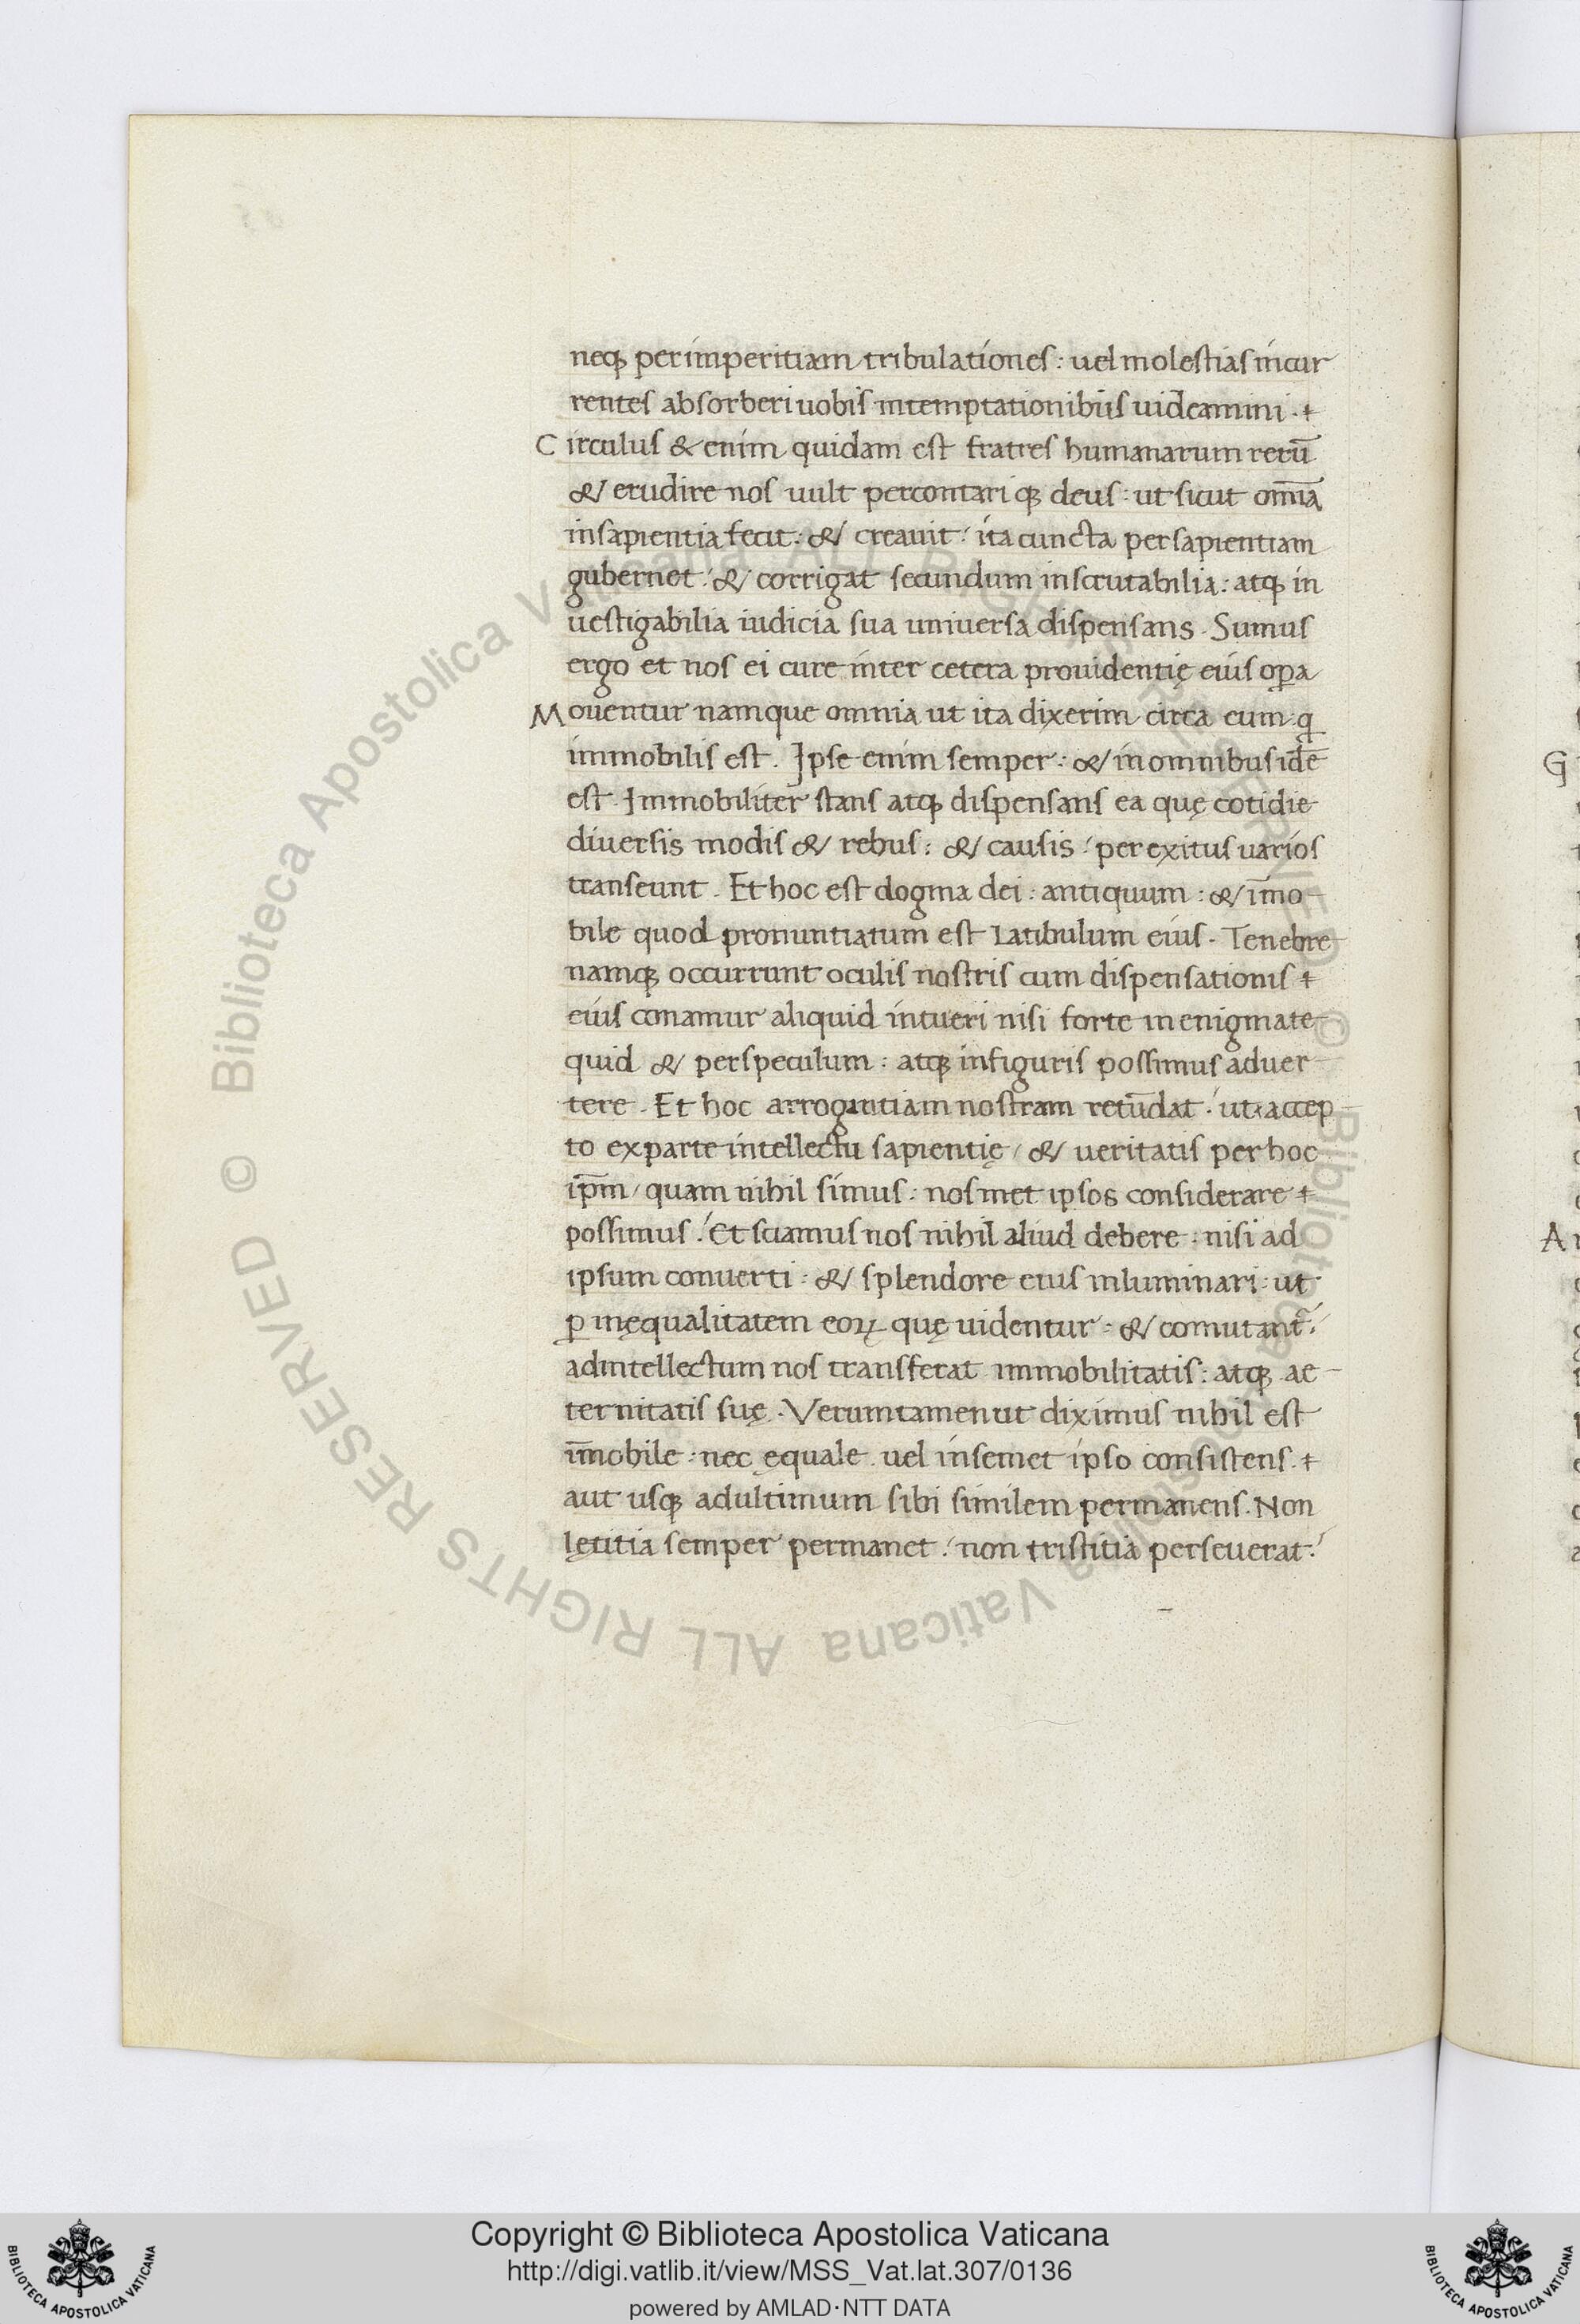 neq; per imperitiam tribulationes: uel molestias incur
rentes absorberi uobis in temptationibus uideamini.
Circulus & enim quidam est fratres humanarum rerū
& erudire nos uult percontari q; deus: ut sicut om̄ia
in sapientia fecit: & creauit: ita cuncta per sapientiam
gubernet: & corrigat secundum inscrutabilia: atq; in
uestigabilia iudicia sua uniuersa dispensans. Sumus
ergo et nos ei cure inter cetera prouidentię eius oꝑa
Mouentur namque omnia ut ita dixerim circa eum q
immobilis est. Ipse enim semper: & in omnibus idē
est. Immobiliter stans atq; dispensans ea quę cotidie
diuersis modis & rebus: & causis: per exitus uarios
transeunt. Et hoc est dogma dei: antiquum: & im̄o
bile quod pronuntiatum est Latibulum eius. Tenebre
namq; occurrunt oculis nostris cum dispensationis
eius conamur aliquid intueri nisi forte in enigmate
quid & per speculum: atq; in figuris possimus aduer
tere. Et hoc arrogantiam nostram retūdat: ut accep
to ex parte intellectu sapientię / & ueritatis per hoc
ip̄m / quam nihil simus: nosmet ipsos considerare
possimus: Et sciamus nos nihil aliud debere: nisi ad
ipsum conuerti: & splendore eius inluminari: ut
ꝑ inęqualitatem eoꝝ quę uidentur: & comutant̄:
ad intellectum nos transferat immobilitatis: atq; ae
ternitatis suę. Verumtamen ut diximus nihil est
im̄obile: nec ęquale uel in semet ipso consistens.
aut usq; ad ultimum sibi similem permanens. Non
lętitia semper permanet: non tristitia perseuerat:
G
A
Copyright © Biblioteca Apostolica Vaticana
http://digi.vatlib.it/view/MSS_Vat.lat.307/0136
powered by AMLAD·NTT DATA
BIBLIOTECA APOSTOLICA VATICANA
BIBLIOTECA APOSTOLICA VATICANA
© Biblioteca Apostolica Vaticana ALL RIGHTS RESERVED
© Biblioteca Apostolica Vaticana ALL RIGHTS RESERVED